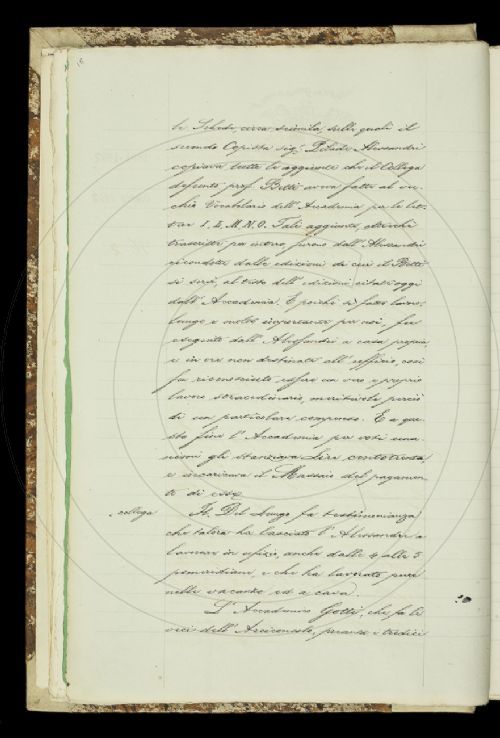 le Schede, circa seimila, sulle quali il
secondo Copista sigr. Pilade Alessandri
copiava tutte le aggiunte che il Collega
defunto prof. Betti aveva fatte al vec-
chio Vocabolario dell'Accademia per le let-
tere I. L. M. N. O. Tali aggiunte,
trascritte per intero, furono dall'Alessandri
ricondotte dalle edizioni di cui il Betti
si servì, al testo dell'edizioni citate oggi
dall'Accademia. E poichè sì fatto lavoro,
lungo e molto importante per noi, fu
eseguito dall'Alessandri a casa propria
e in ore non destinate all'uffizio, così
fu riconosciuto essere un vero e proprio
lavoro straordinario, meritevole perciò
di un particolare compenso. E a que-
sto fine l'Accademia per voti una-
nimi gli stanziava Lire centotrenta
e incaricava il Massaio del pagamen-
to di esse.
collega Il Del Lungo fa testimonianza
che talora ha lasciato l'Alessandri a
lavorare in ufizio, anche dalle 4 alle 5
pomeridiane, e che ha lavorato pure
nelle vacanze ed a casa.
L'Accademico Gotti, che fa le
veci dell'Arciconsolo, presenta i tredici